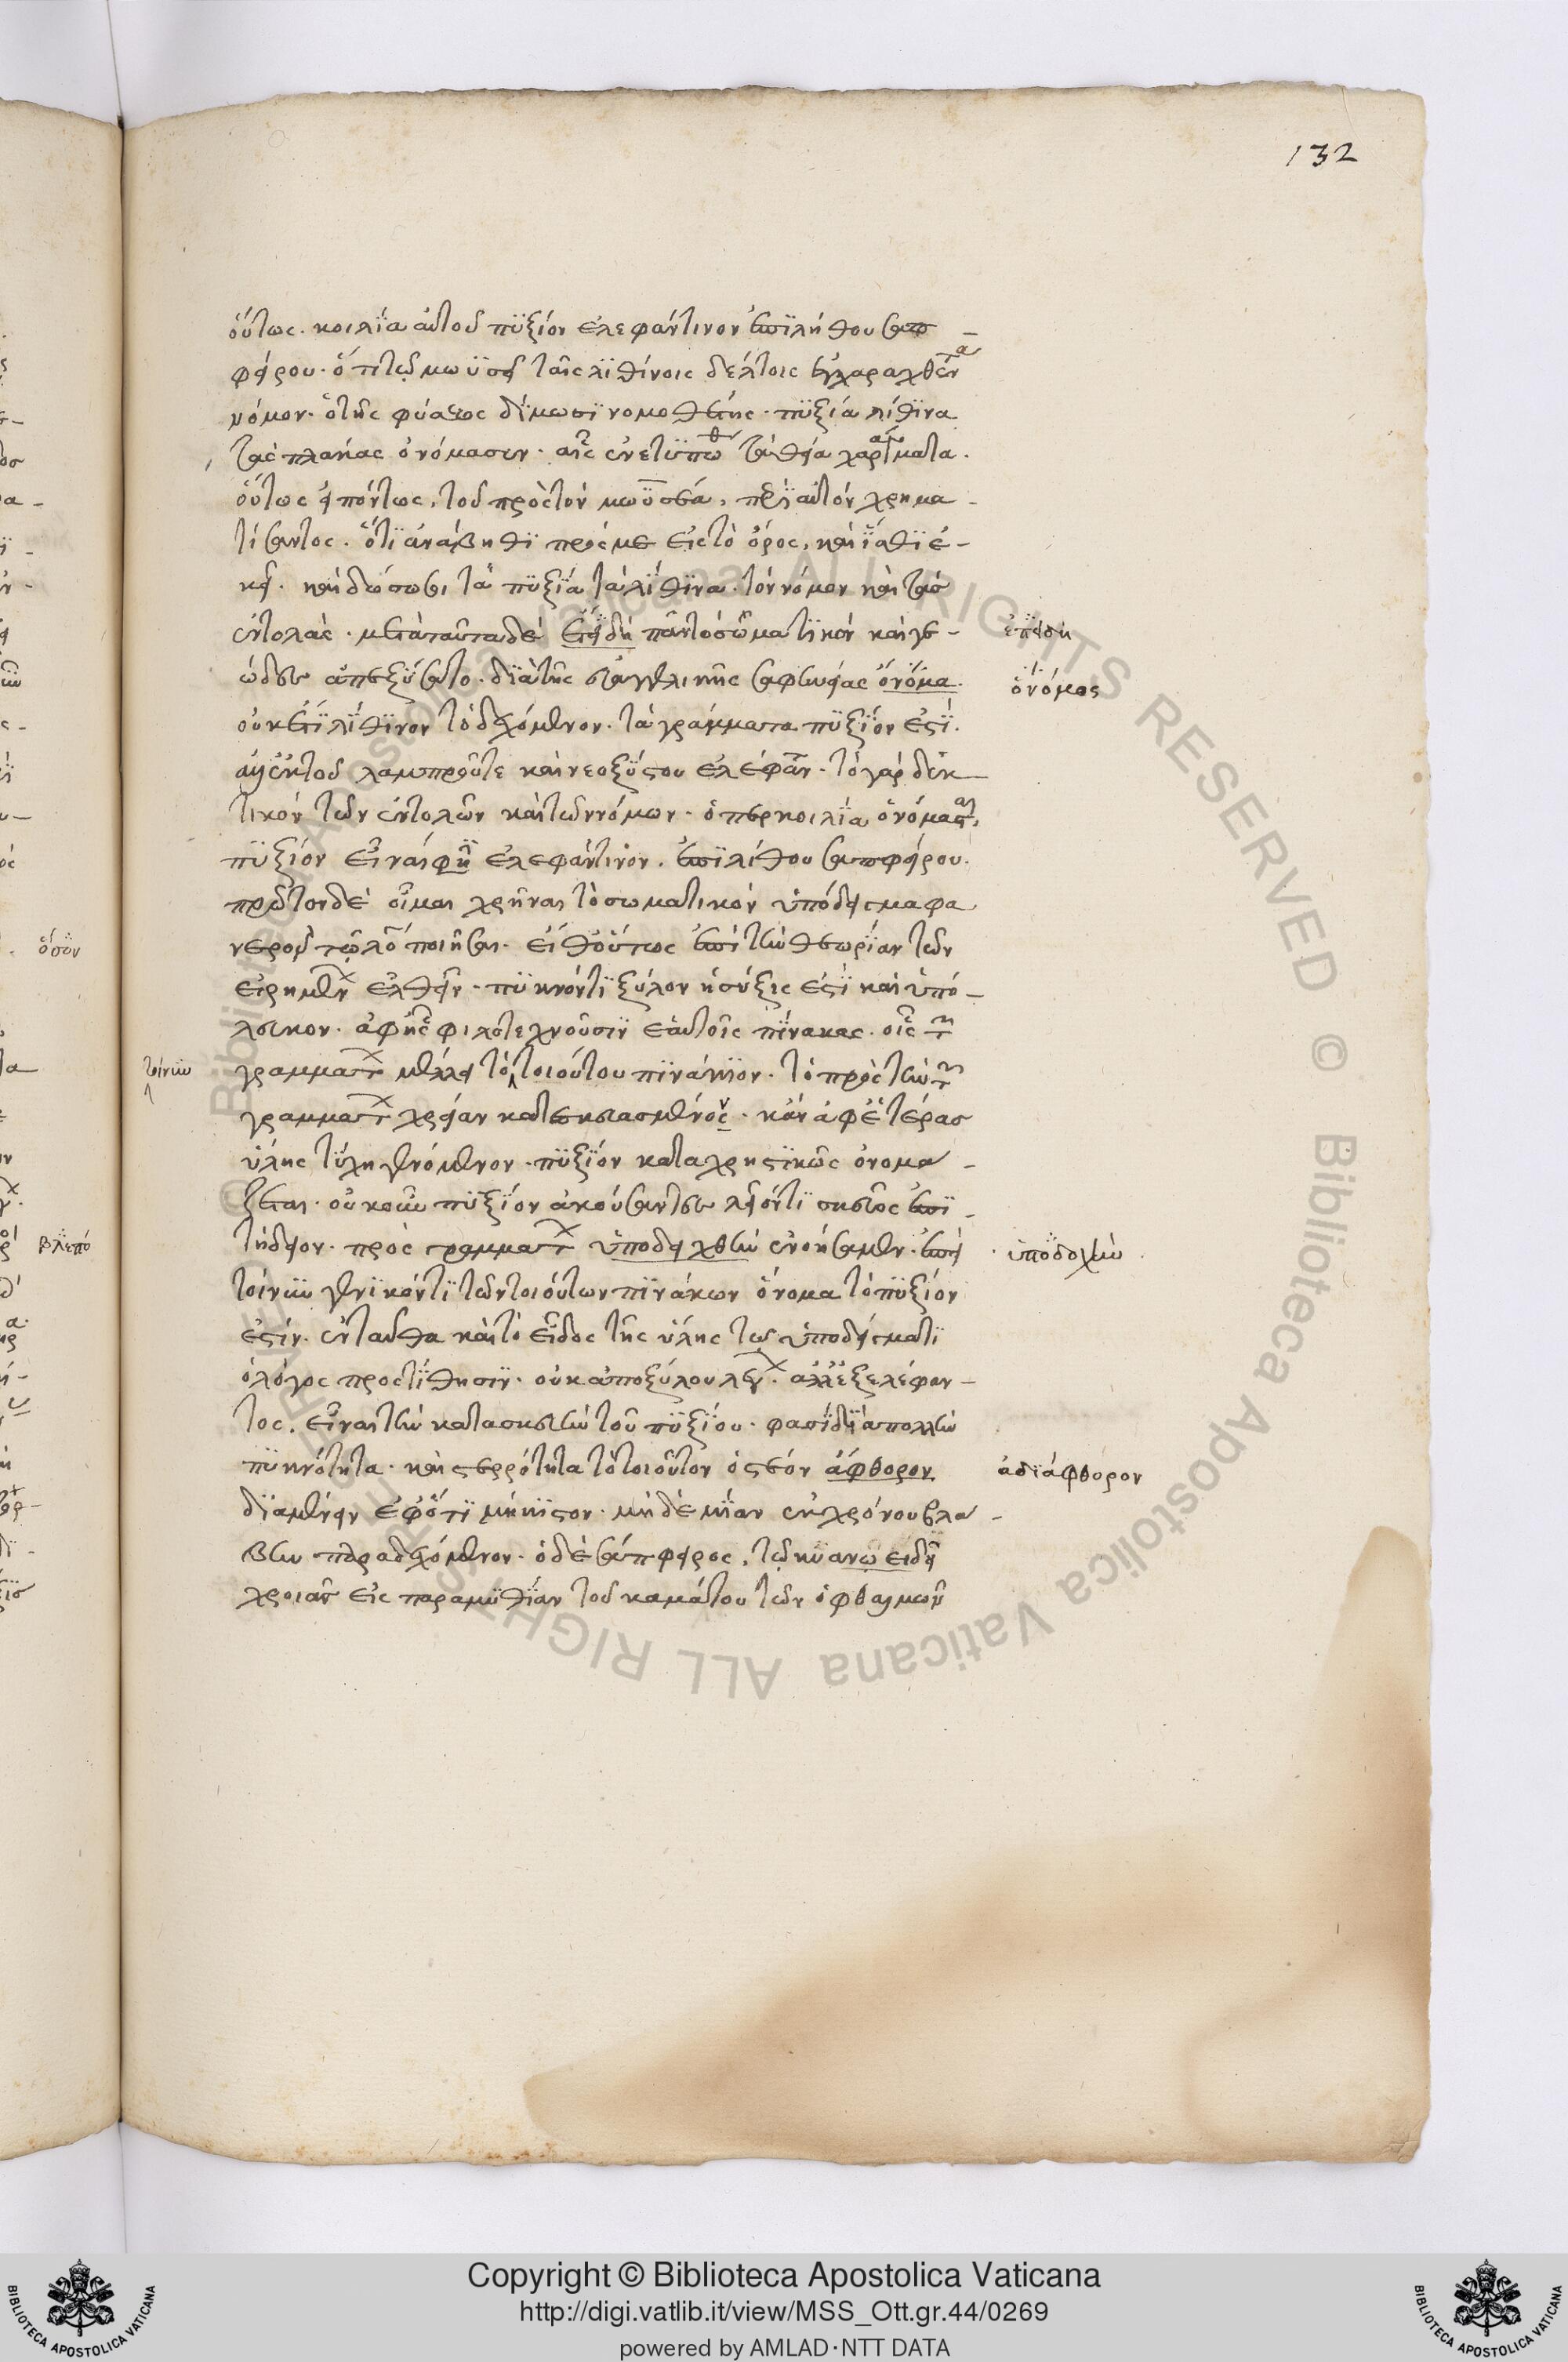 132
οὕτως. κοιλΐα αὐτοῦ πϋξίον ἐλεφάντινον ἐπῒ λήθου σαπ-
φείρου. ὅτι τῷ μωϋσεῖ ταῖς λϊθίνοις δέλτοις ἐγχαραχθέντα
νόμον. ὁ τῆς φύσεως δϊμωσϊ νομοθέτης. πϋξία λίθϊνα
τὰς πλακας ὀνόμασεν. αἷς ἐνετϋπώθ τὰ θεῖα χαράγματα.
οὕτως εἰπόντως, τοῦ πρὸς τὸν μωϋσέα, περῒ αὐτὸν χρημα-
τίσαντος. ὅτϊ ἀνάβηθϊ πρός με εἰς τὸ ὄρος, καὶ ἴσθϊ ἐ-
κεῖ. καὶ δώσω σοι τὰ πϋξία τὰ λϊθϊνα. τὸν νόμον καὶ τὰσ
ἐντολὰς. μετὰ ταῦτα δὲ ἐπειδὴ πᾶν τὸ σωματϊκὸν καὶ γε- ἐπειδὴ
ῶδες ἀπεξύσατο. δϊὰ τῆς εὐαγγελικῆς σαφηνείας ὁ νόμα. ὁ νόμος
οὐκέτϊ λίθϊνον τὸ δεχόμενον. τὰ γράμματα πϋξΐον ἐστΐ.
ἀλλ' ἐκ τοῦ λαμπροῦ τε καὶ νεοξΰστου ἐλέφαν. τὸ γὰρ δεκ-
τικὸν τῶν ἐντολῶν καὶ τῶν νόμων. ὅπερ κοιλΐα ὀνόμασται,
πϋξίον εἶναι φησῒ ἐλεφάντινον. ἐπῒ λίθου σαπφείρου.
πρῶτον δὲ οἶμαι χρῆναι τὸ σωματικὸν ὑπόδειγμα φα
νερὸν τῷ λό ποιῆσαι. εἶθ οὕτως ἐπὶ τὴν θεωρΐαν τῶν
εἰρημένων ἐλθεῖν. πϋκνόν τϊ ξύλον ἡ πύξις ἐστῒ καὶ ὑπό-
λευκον. ἀφ ἧς φιλοτεχνοῦσϊν ἑαυτοῖς πΐνακας. οἷς τῶν
τοίνυν γραμμάτων μέλλει τὸ τοιούτου πϊνάκϊον. τὸ πρὸς τὴν τῶν
γραμμάτων χρείαν κατεσκευασμένος. κἂν ἀφ ἑτέρας
ὕλης τύχη γενόμενον. πϋξΐον καταχρηστϊκῶς ὀνομα-
ζεται. οὐκοῦν πϋξΐον ἀκούσαντες λεῖόν τϊ σκεῦος ἐπϊ-
τήδειον. πρὸς γραμμάτων ὑποδειχθὴν ἐνοήσαμεν. ἐπεὶ ὑποδοχὴν
τοίνυν γενϊκόν τϊ τῶν τοιούτων πϊνάκων ὄνομα τὸ πϋξίον
ἐστίν. ἐνταῦθα καὶ τὸ εἶδος τῆς ὕλης τῷ ὑποδείγματϊ
ὁ λόγος προστΐθησϊν. οὐκ ἀπο ξύλου λέγων. ἀλλ' ἐξ ἐλέφαν-
τος. εἶναι τὴν κατασκευὴν τοῦ πϋξΐου. φασὶ δϊὰ πολλὴν
πϋκνότητα. καὶ στερρότητα τὸ τοιοῦτον ὀστέον ἄφθορον ἀδϊάφθορον
δϊαμένειν ἐφ ὅτϊ μήκϊστον. μὴ δὲ μΐαν ἐκ χρόνου βλα-
βην παραδεχόμενον. ὁ δὲ σάπφειρος, τῷ κϋανῷ εἰδεῖ
χροιᾶς εἰς παραμϋθΐαν τοῦ καμάτου τῶν ὀφθαλμῶν
ὅσον
βλεπό
Copyright © Biblioteca Apostolica Vaticana
http://digi.vatlib.it/view/MSS_Ott.gr.44/0269
powered by AMLAD·NTT DATA
BIBLIOTECA APOSTOLICA VATICANA
BIBLIOTECA APOSTOLICA VATICANA
© Biblioteca Apostolica Vaticana ALL RIGHTS RESERVED © Biblioteca Apostolica Vaticana ALL RIGHTS RESERVED